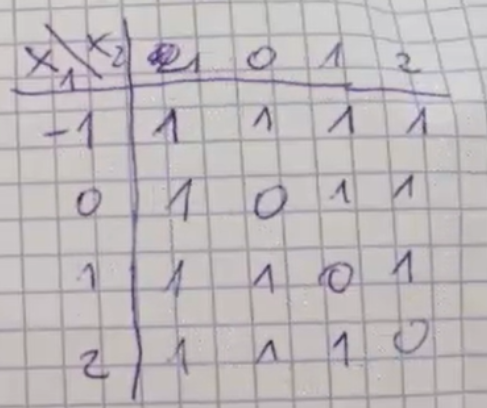 x₁ x₂ -1 0 1 2
-1 1 1 1 1
0 1 0 1 1
1 1 1 0 1
2 1 1 1 0